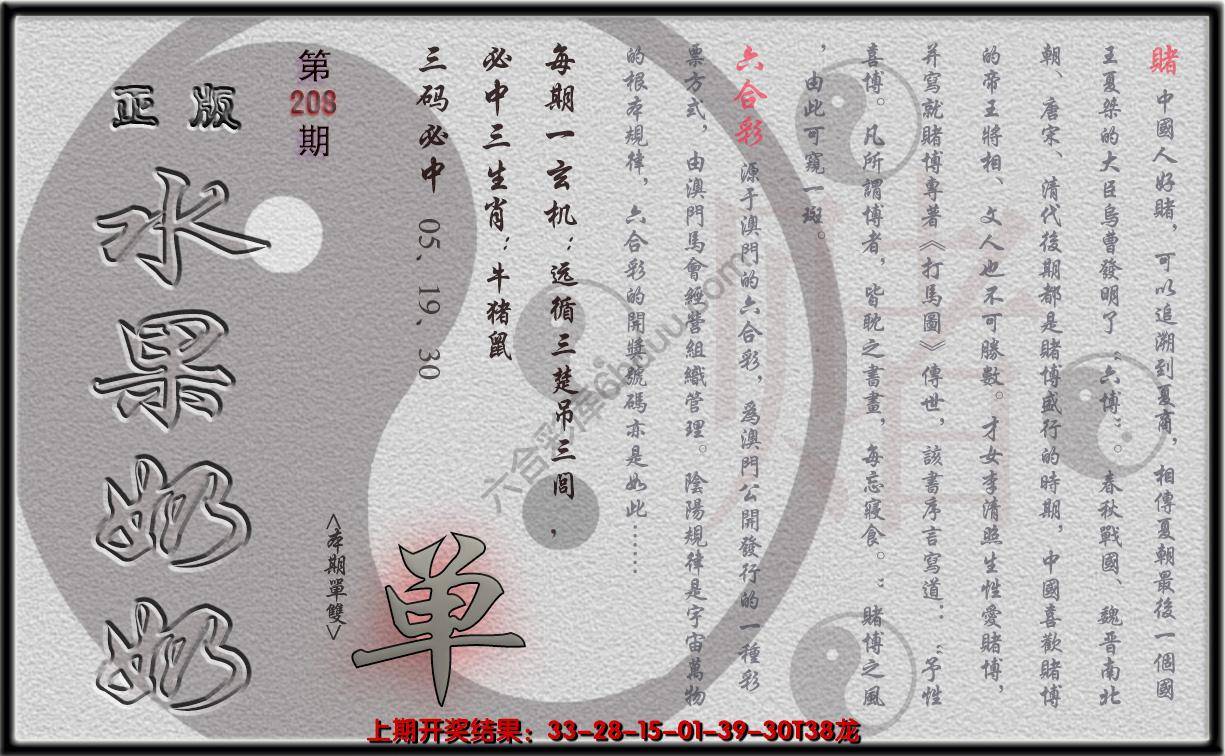 賭 中國人好賭，可以追溯到夏商，相傳夏朝最後一個國
王夏桀的大臣烏曹發明了“六博”。春秋戰國、魏晋南北
朝、唐宋、清代後期都是賭博盛行的時期，中國喜歡賭博
的帝王將相、文人也不可勝數。才女李清照生性愛賭博，
并寫就賭博專著《打馬圖》傳世，該書序言寫道：“予性
喜博。凡所謂博者，皆耽之書畫，每忘寢食。”賭博之風
，由此可窺一斑。
六合彩 源于澳門的六合彩，為澳門公開發行的一種彩
票方式，由澳門馬會經營組織管理。陰陽規律是宇宙萬物
的根本規律，六合彩的開獎號碼亦是如此……
每期一玄机：远循三楚吊三闾，
必中三生肖：牛猪鼠
三码必中 05、19、30
第
208
期
正版
水果奶奶
<本期單雙>
单
賭
六合彩库6huuu.com
上期开奖结果：33-28-15-01-39-30T38龙